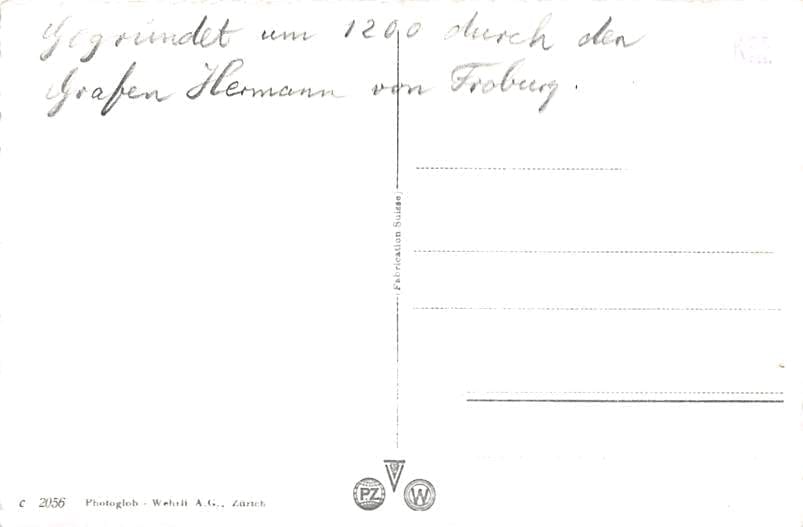 Gegründet um 1200 durch den
Grafen Hermann von Froburg.
Fabrication Suisse
c 2056 Photoglob - Wehrli A.G., Zürich
PZ
W